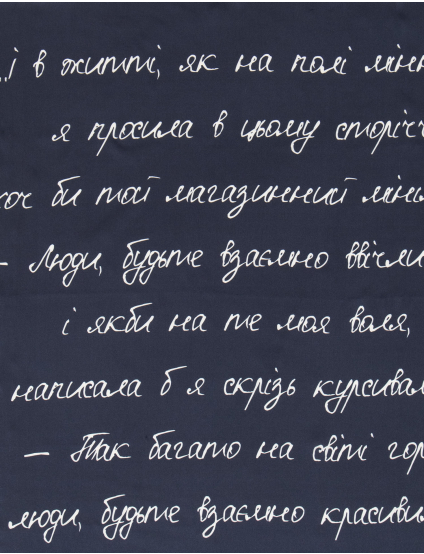 і в житті, як на полі мінн
я просила в цьому сторічч
хоч би той магазинний міні
– Люди, будьте взаємно ввічли
і якби на те моя воля,
написала б я скрізь курсивам
– Так багато на світі гор
люди, будьте взаємно красиви